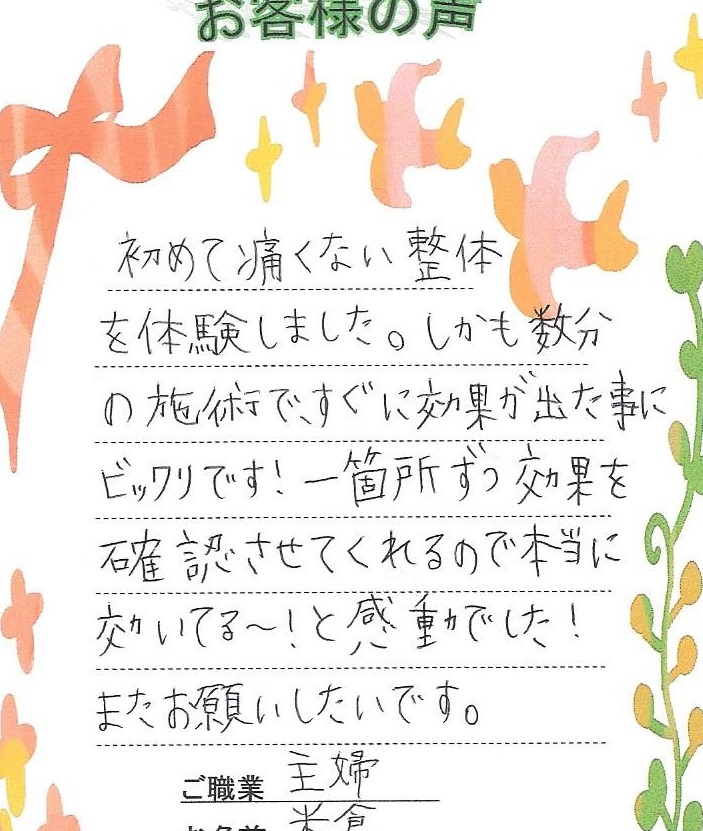 お客様の声
初めて痛くない整体
を体験しました。しかも数分
の施術で、すぐに効果が出た事に
ビックリです！一箇所ずつ効果を
確認させてくれるので本当に
効いてる〜！と感動でした！
またお願いしたいです。
ご職業 主婦
お名前